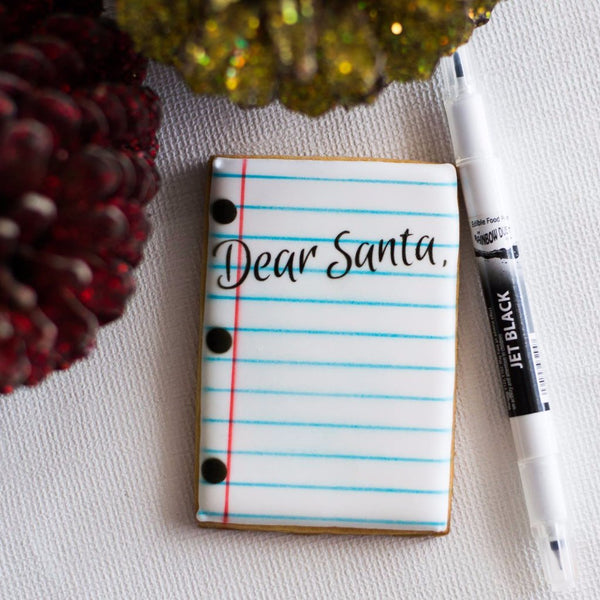 Dear Santa,
Edible Food
RAINBOW DU
JET BLACK